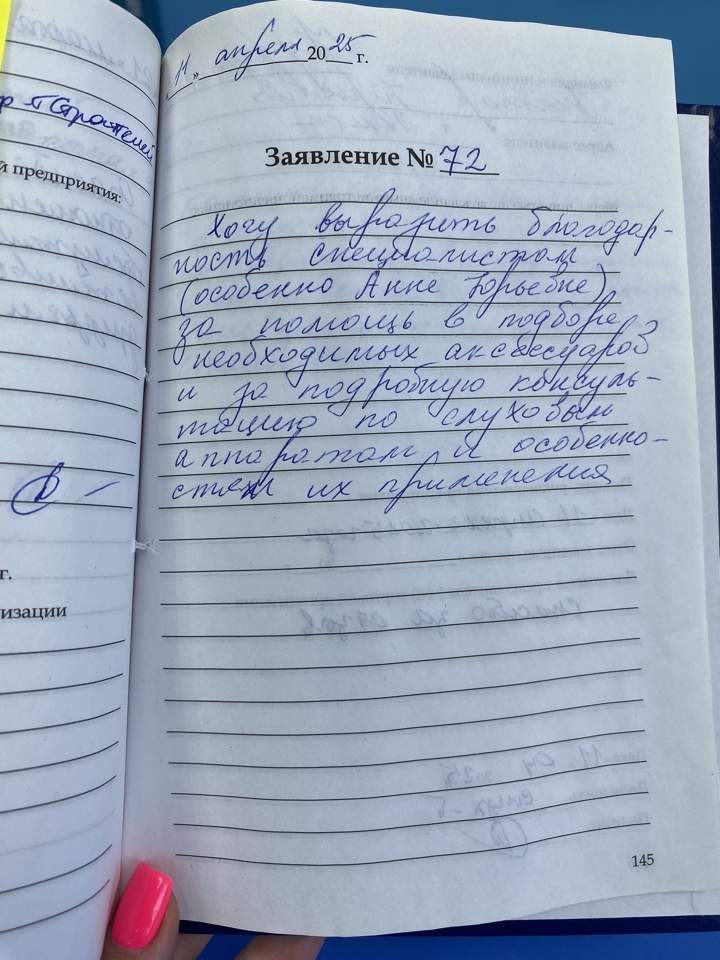 Строителей
й предприятия:
г.
изации
„11" апреля 2025 г.
Заявление № 72
Хочу выразить благодар-
ность специалистам
(особенно Анне Юрьевне)
за помощь в подборе
необходимых аксессуаров
и за подробную консуль-
тацию по слуховым
аппаратам и особенно-
стям их применения
145